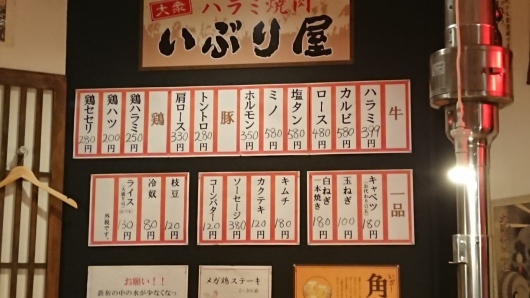 大衆
ハラミ焼肉
いぶり屋
牛
ハラミ 399円
カルビ 580円
ロース 480円
塩タン 580円
ミノ 580円
ホルモン 350円
豚
トントロ 280円
肩ロース 330円
鶏
鶏ハラミ 250円
鶏ハツ 200円
鶏セセリ 280円
一品
キャベツ 180円
玉ねぎ 100円
白ねぎ一本焼き 180円
キムチ 180円
カクテキ 120円
ソーセージ 380円
コーンバター 120円
枝豆 120円
冷奴 80円
ライス 130円
外税です。
お願い!!
鉄板の中の水が少なくなっ
メガ鶏ステーキ
角